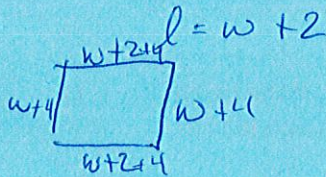 l = w + 2
w+2+4
w+4
w+4
w+2+4